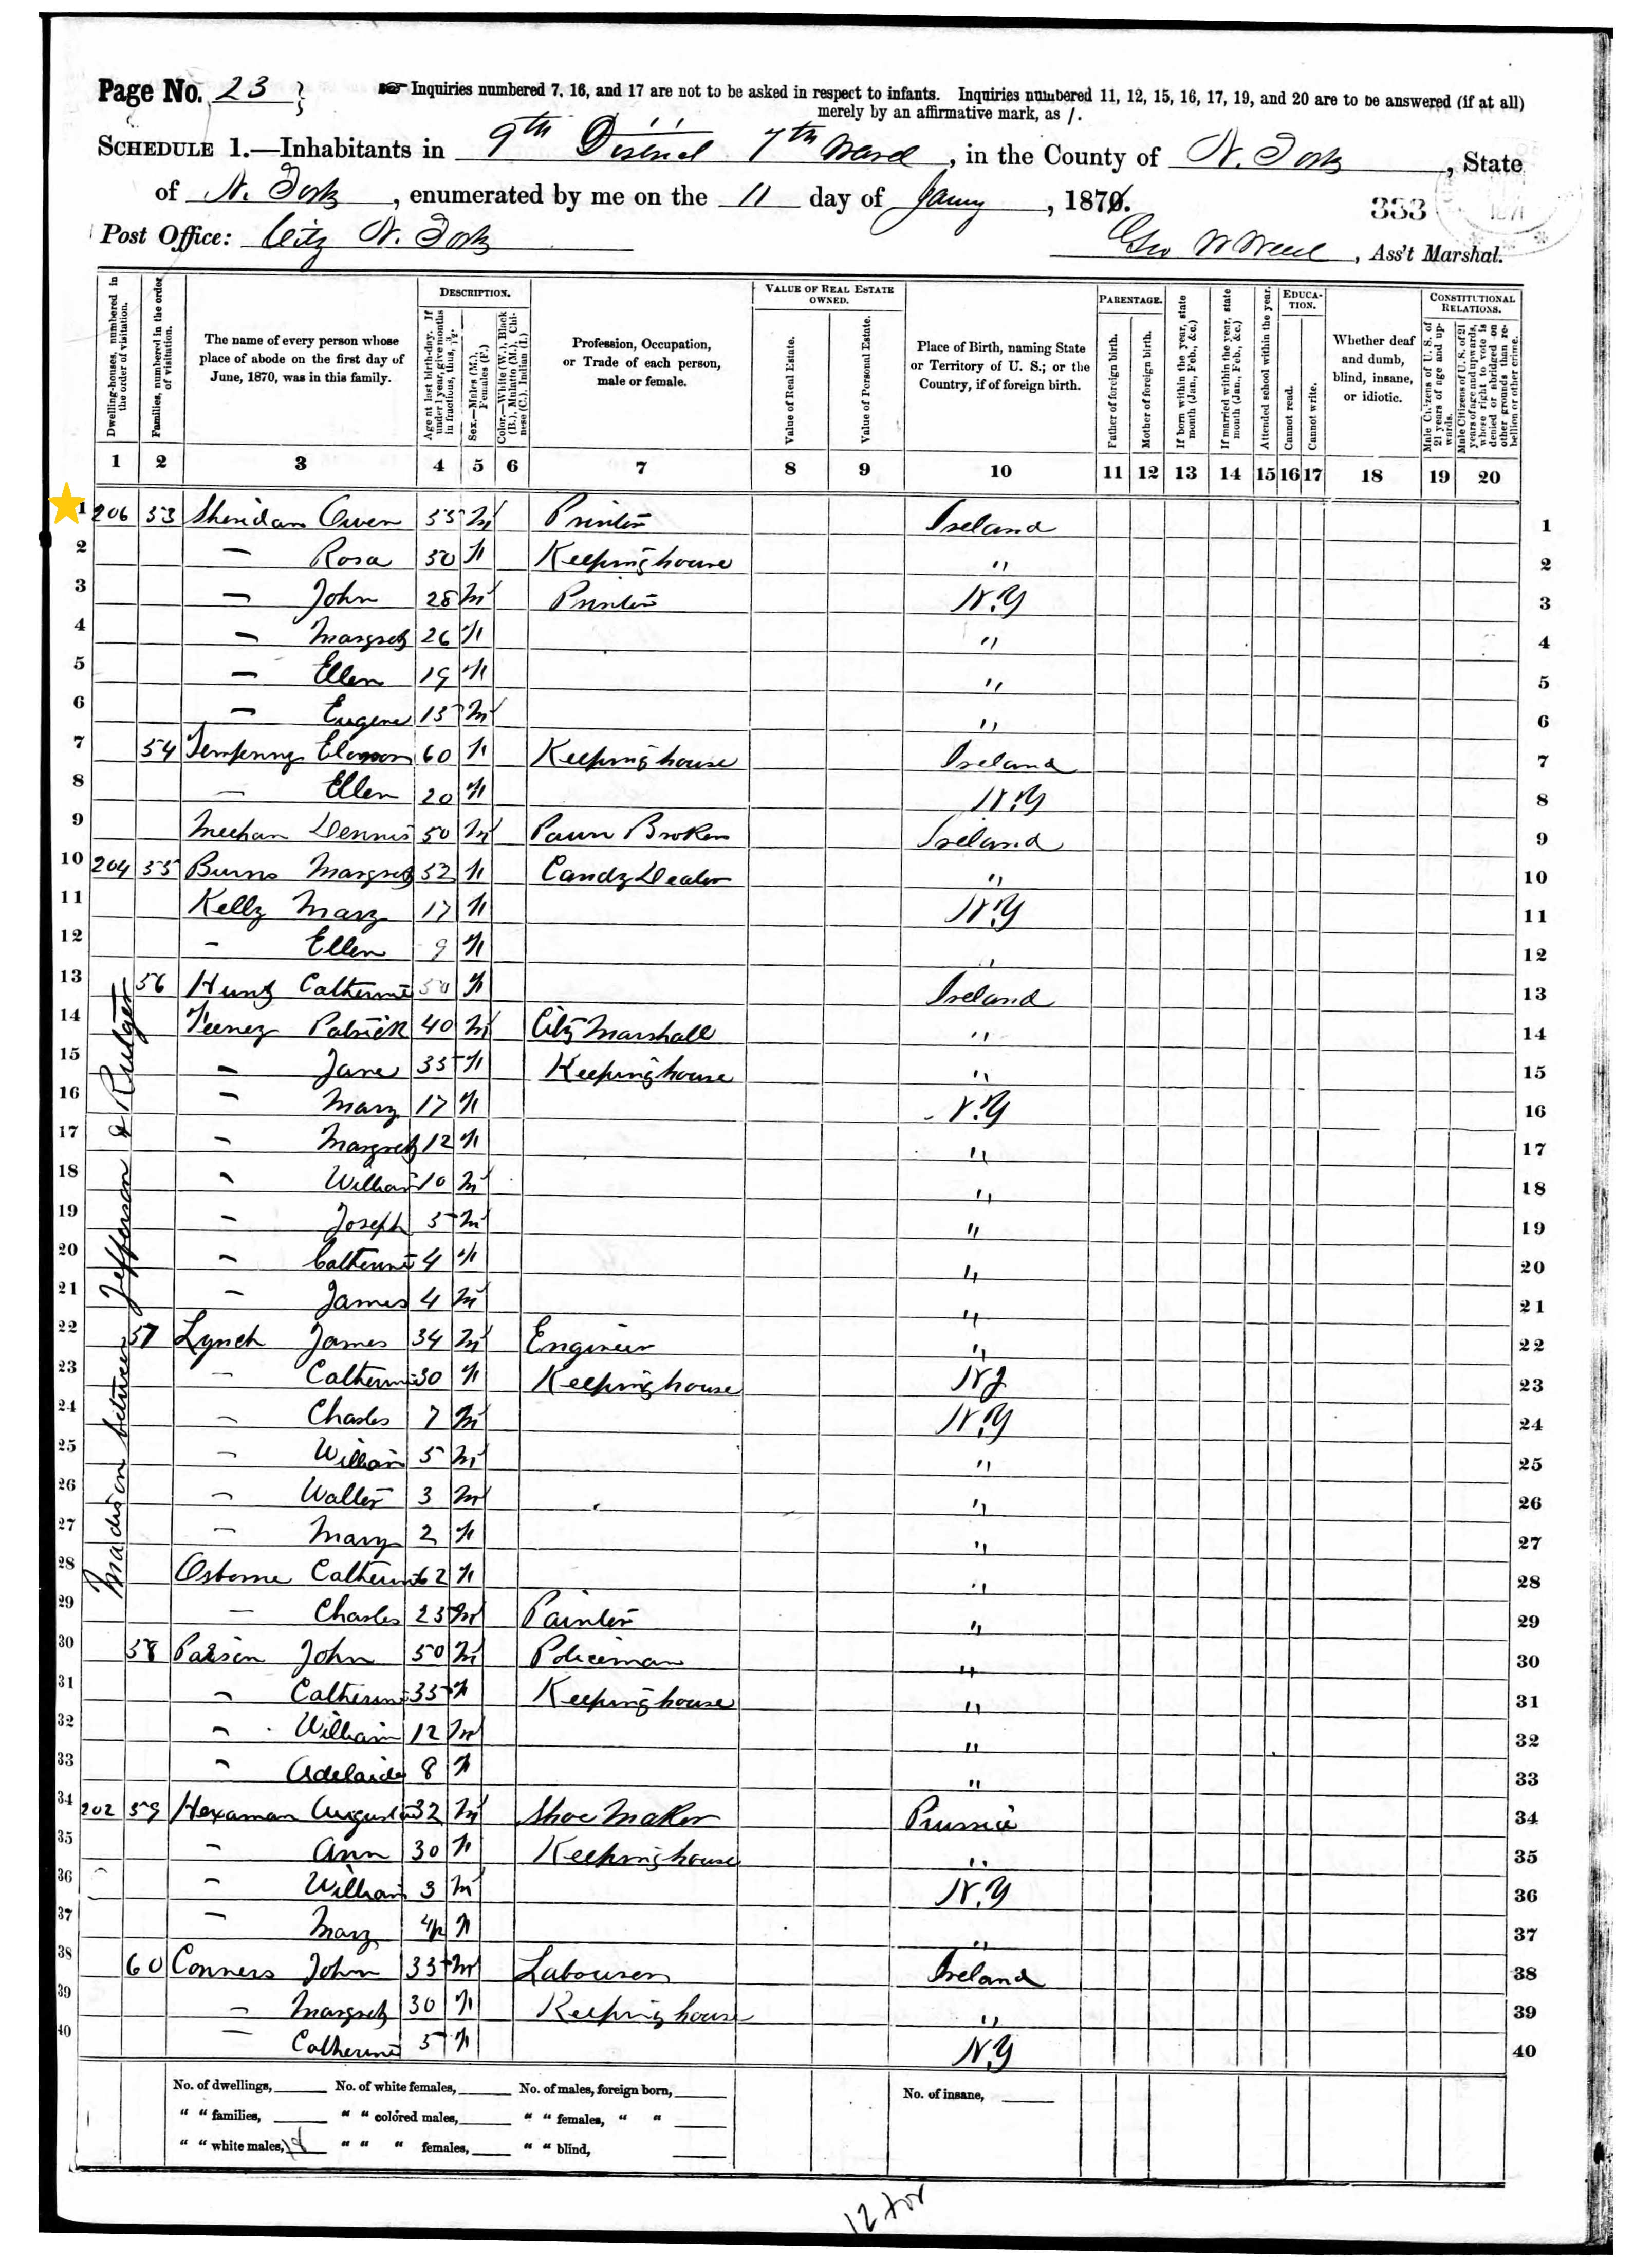 Page No. 23
Inquiries numbered 7, 16, and 17 are not to be asked in respect to infants. Inquiries numbered 11, 12, 15, 16, 17, 19, and 20 are to be answered (if at all)
merely by an affirmative mark, as /.
SCHEDULE 1.—Inhabitants in 9th District 7th Ward, in the County of N. York, State
of N. York, enumerated by me on the 11 day of Jany, 1870.
333
1871
Post Office: City N. York
Geo W, Ass't Marshal.
Dwelling-houses, numbered in the order of visitation.
Families, numbered in the order of visitation.
The name of every person whose place of abode on the first day of June, 1870, was in this family.
DESCRIPTION.
Age at last birth-day. If under 1 year, give months in fractions, thus, 3/12.
Sex.—Males (M.), Females (F.)
Color.—White (W.), Black (B.), Mulatto (M.), Chinese (C.), Indian (I.)
Profession, Occupation, or Trade of each person, male or female.
VALUE OF REAL ESTATE OWNED.
Value of Real Estate.
Value of Personal Estate.
Place of Birth, naming State or Territory of U. S.; or the Country, if of foreign birth.
PARENTAGE.
Father of foreign birth.
Mother of foreign birth.
If born within the year, state month (Jan., Feb., &c.)
If married within the year, state month (Jan., Feb., &c.)
Attended school within the year.
EDUCATION.
Cannot read.
Cannot write.
Whether deaf and dumb, blind, insane, or idiotic.
CONSTITUTIONAL RELATIONS.
Male Citizens of U. S. of 21 years of age and upwards.
Male Citizens of U. S. of 21 years of age and upwards, where right to vote is denied or abridged on other grounds than rebellion or other crime.
1 2 3 4 5 6 7 8 9 10 11 12 13 14 15 16 17 18 19 20
1 206 53 Sheridan Owen 55 M Printer Ireland 1
2 — Rosa 50 F Keeping house " 2
3 — John 28 M Printer N.Y 3
4 — Margret 26 F " 4
5 — Ellen 19 F " 5
6 — Eugene 15 M " 6
7 54 60 F Keeping house Ireland 7
8 — Ellen 20 F N.Y 8
9 Meehan Dennis 50 M Pawn Broker Ireland 9
10 204 55 Burns Margret 52 F Candy Dealer " 10
11 Kelly Mary 17 F N.Y 11
12 - Ellen 9 F " 12
13 56 Catherine 50 F Ireland 13
14 Feeney Patrick 40 M City Marshall " 14
15 — Jane 35 F Keeping house " 15
16 — Mary 17 F N.Y 16
17 — Margret 12 F " 17
18 — William 10 M " 18
19 — Joseph 5 M " 19
20 — Catherine 4 F " 20
21 — James 4 M " 21
22 57 Lynch James 34 M Engineer " 22
23 — Catherine 30 F Keeping house NJ 23
24 — Charles 7 M N.Y 24
25 — William 5 M " 25
26 — Walter 3 M " 26
27 — Mary 2 F " 27
28 Osborne Catherine 62 F " 28
29 — Charles 25 M Painter " 29
30 58 John 50 M Policeman " 30
31 — Catherine 35 F Keeping house " 31
32 — William 12 M " 32
33 — Adelaide 8 F " 33
34 202 59 Hexaman Augustus 32 M Shoe Maker Prussia 34
35 — Ann 30 F Keeping house " 35
36 — William 3 M N.Y 36
37 — Mary F " 37
38 60 Conners John 35 M Labourer Ireland 38
39 — Margret 30 F Keeping house " 39
40 — Catherine 5 F N.Y 40
Madison between Jefferson & Rutger
No. of dwellings, No. of white females, No. of males, foreign born, No. of insane,
" " families, " " colored males, " " females, " "
" " white males, " " " females, " " blind,
12 for